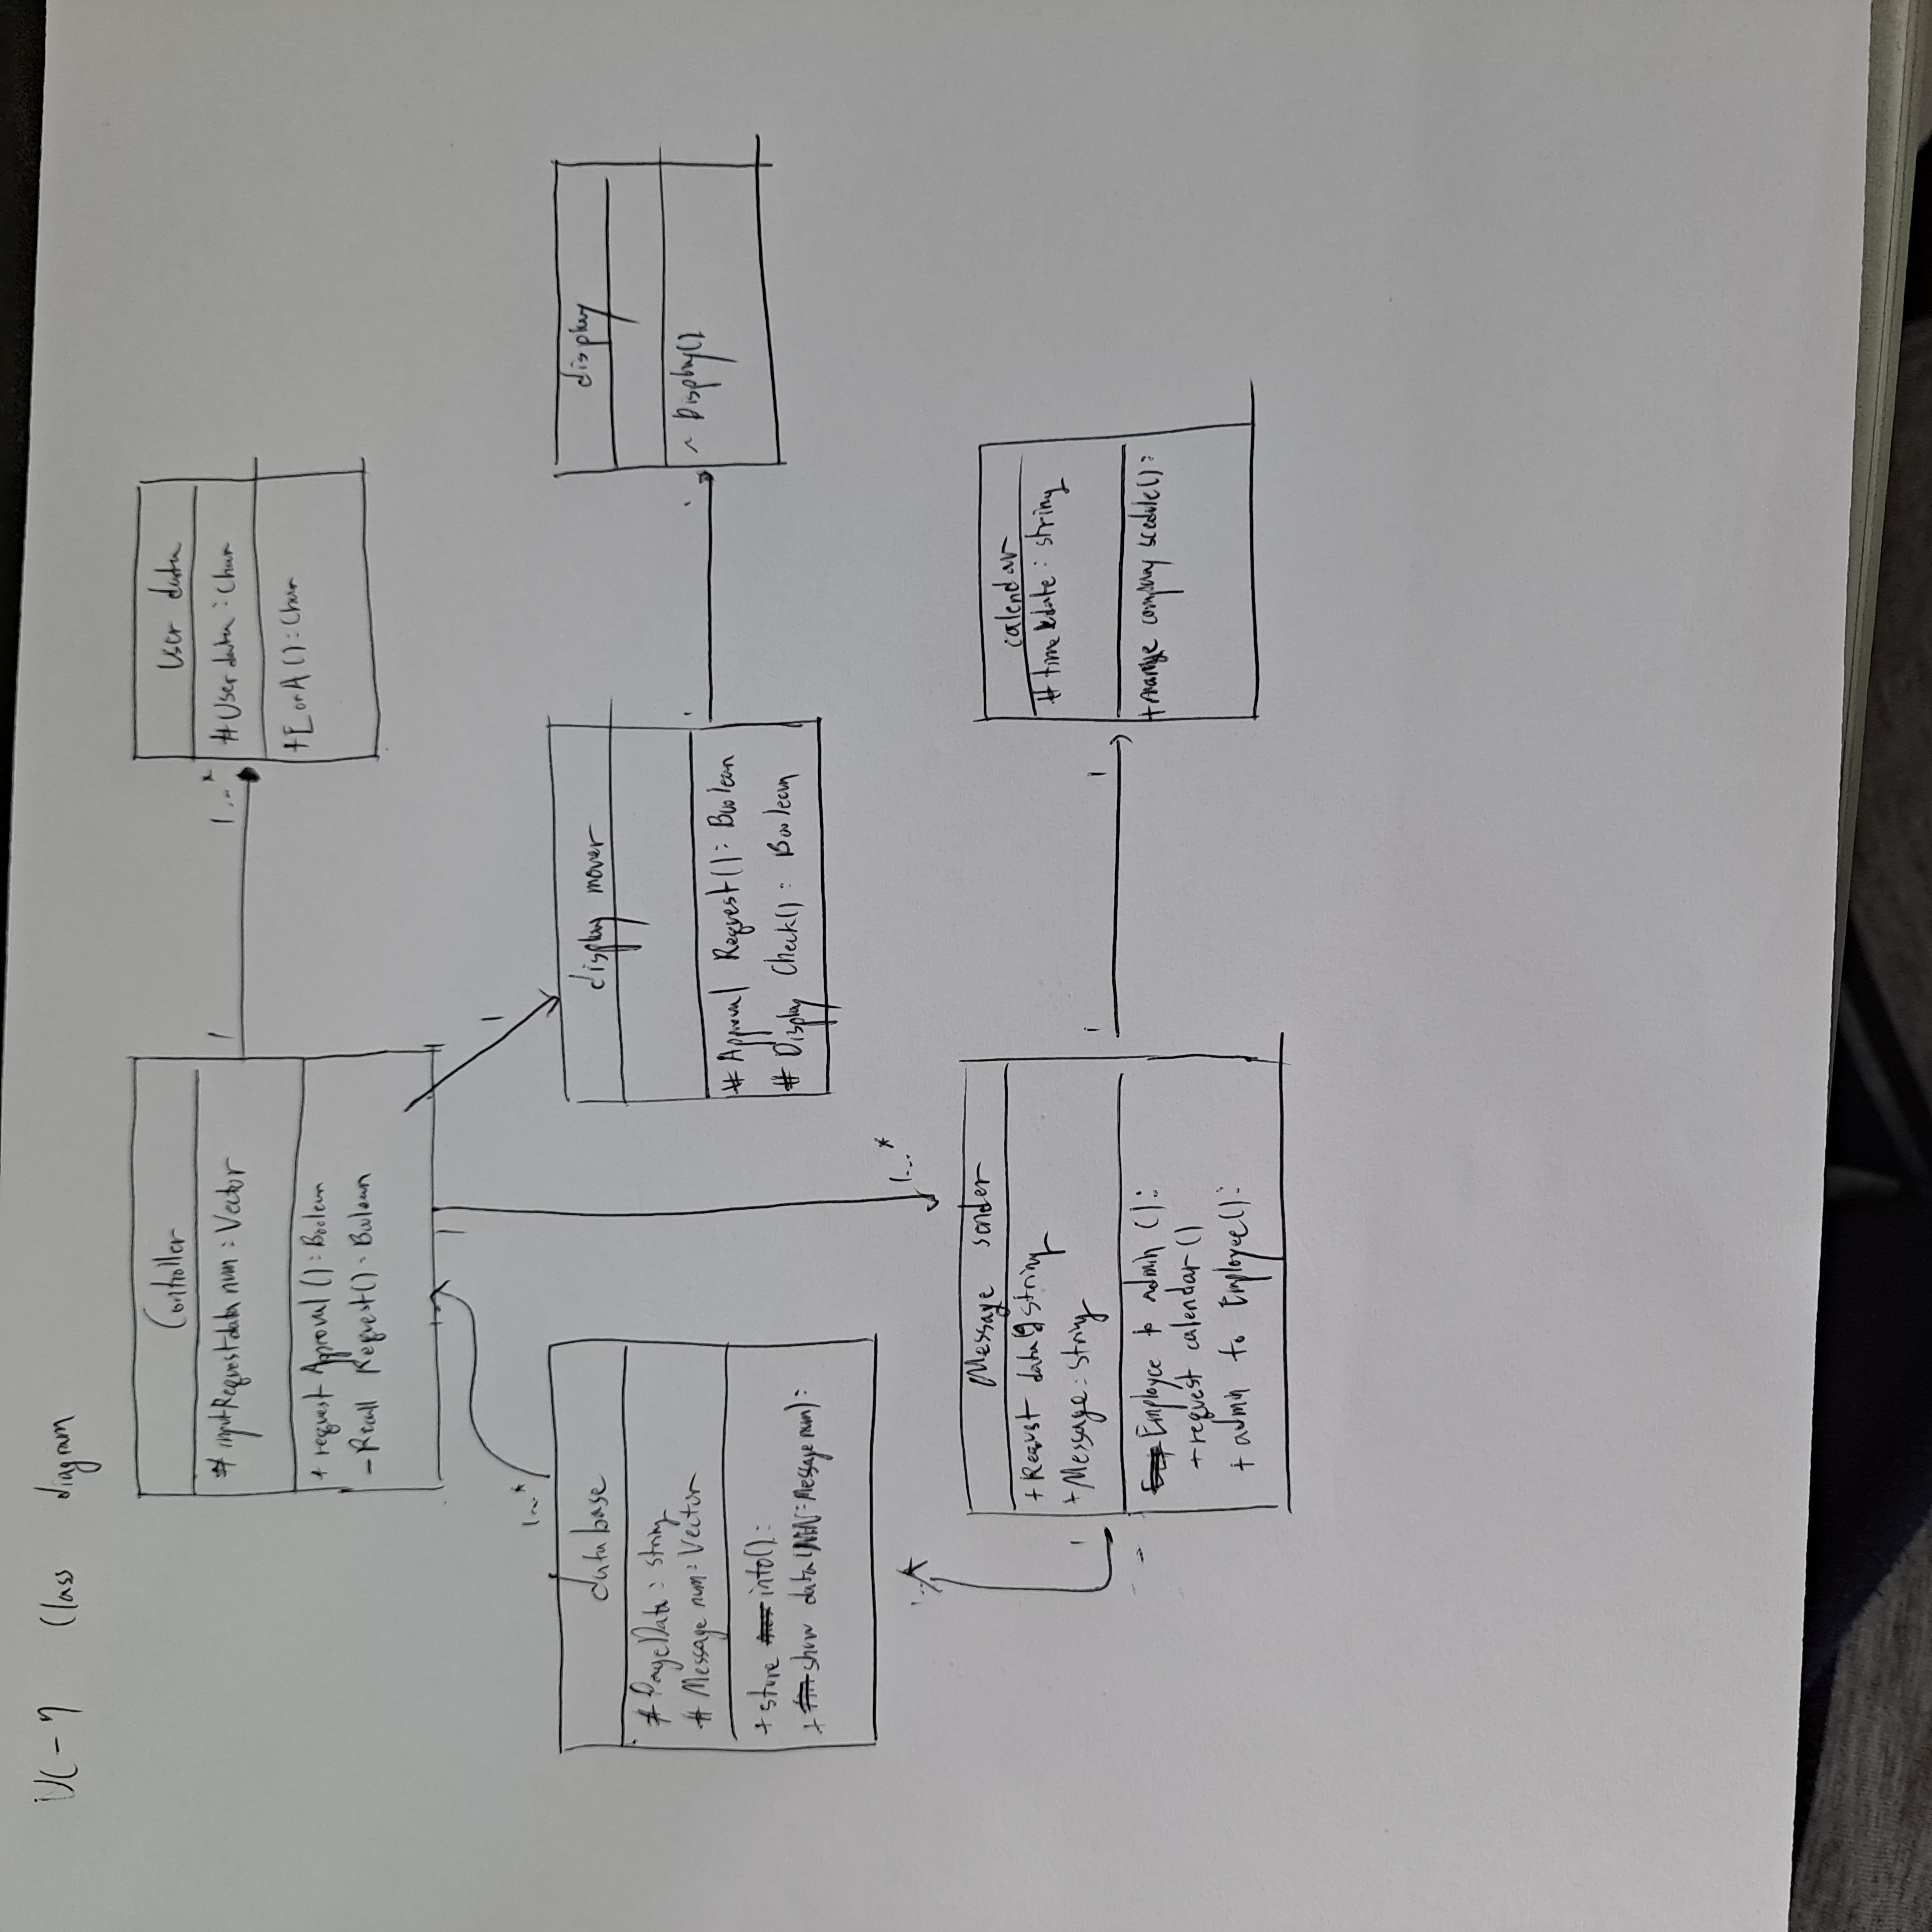 UC-7 Class diagram
Controller
# inputRequestdata num : Vector
+ request Approval () : Boolean
- Recall Request() : Boolean
1
1...*
User data
# User data : Char
+ E or A () : Char
1
1
1...*
1
database
# PageData : string
# Message num : Vector
+ store into() :
+ show data(MN : Message num) :
display mover
# Approval Request() : Boolean
# Display Check() : Boolean
display
~ Display()
1...*
1...*
1
Message sender
+ Requst data : string
+ Message : string
Employee to admin () :
+ request calendar ()
+ admin to Employee() :
1
1
calendar
# time &date : string
+ manage company scedule() :